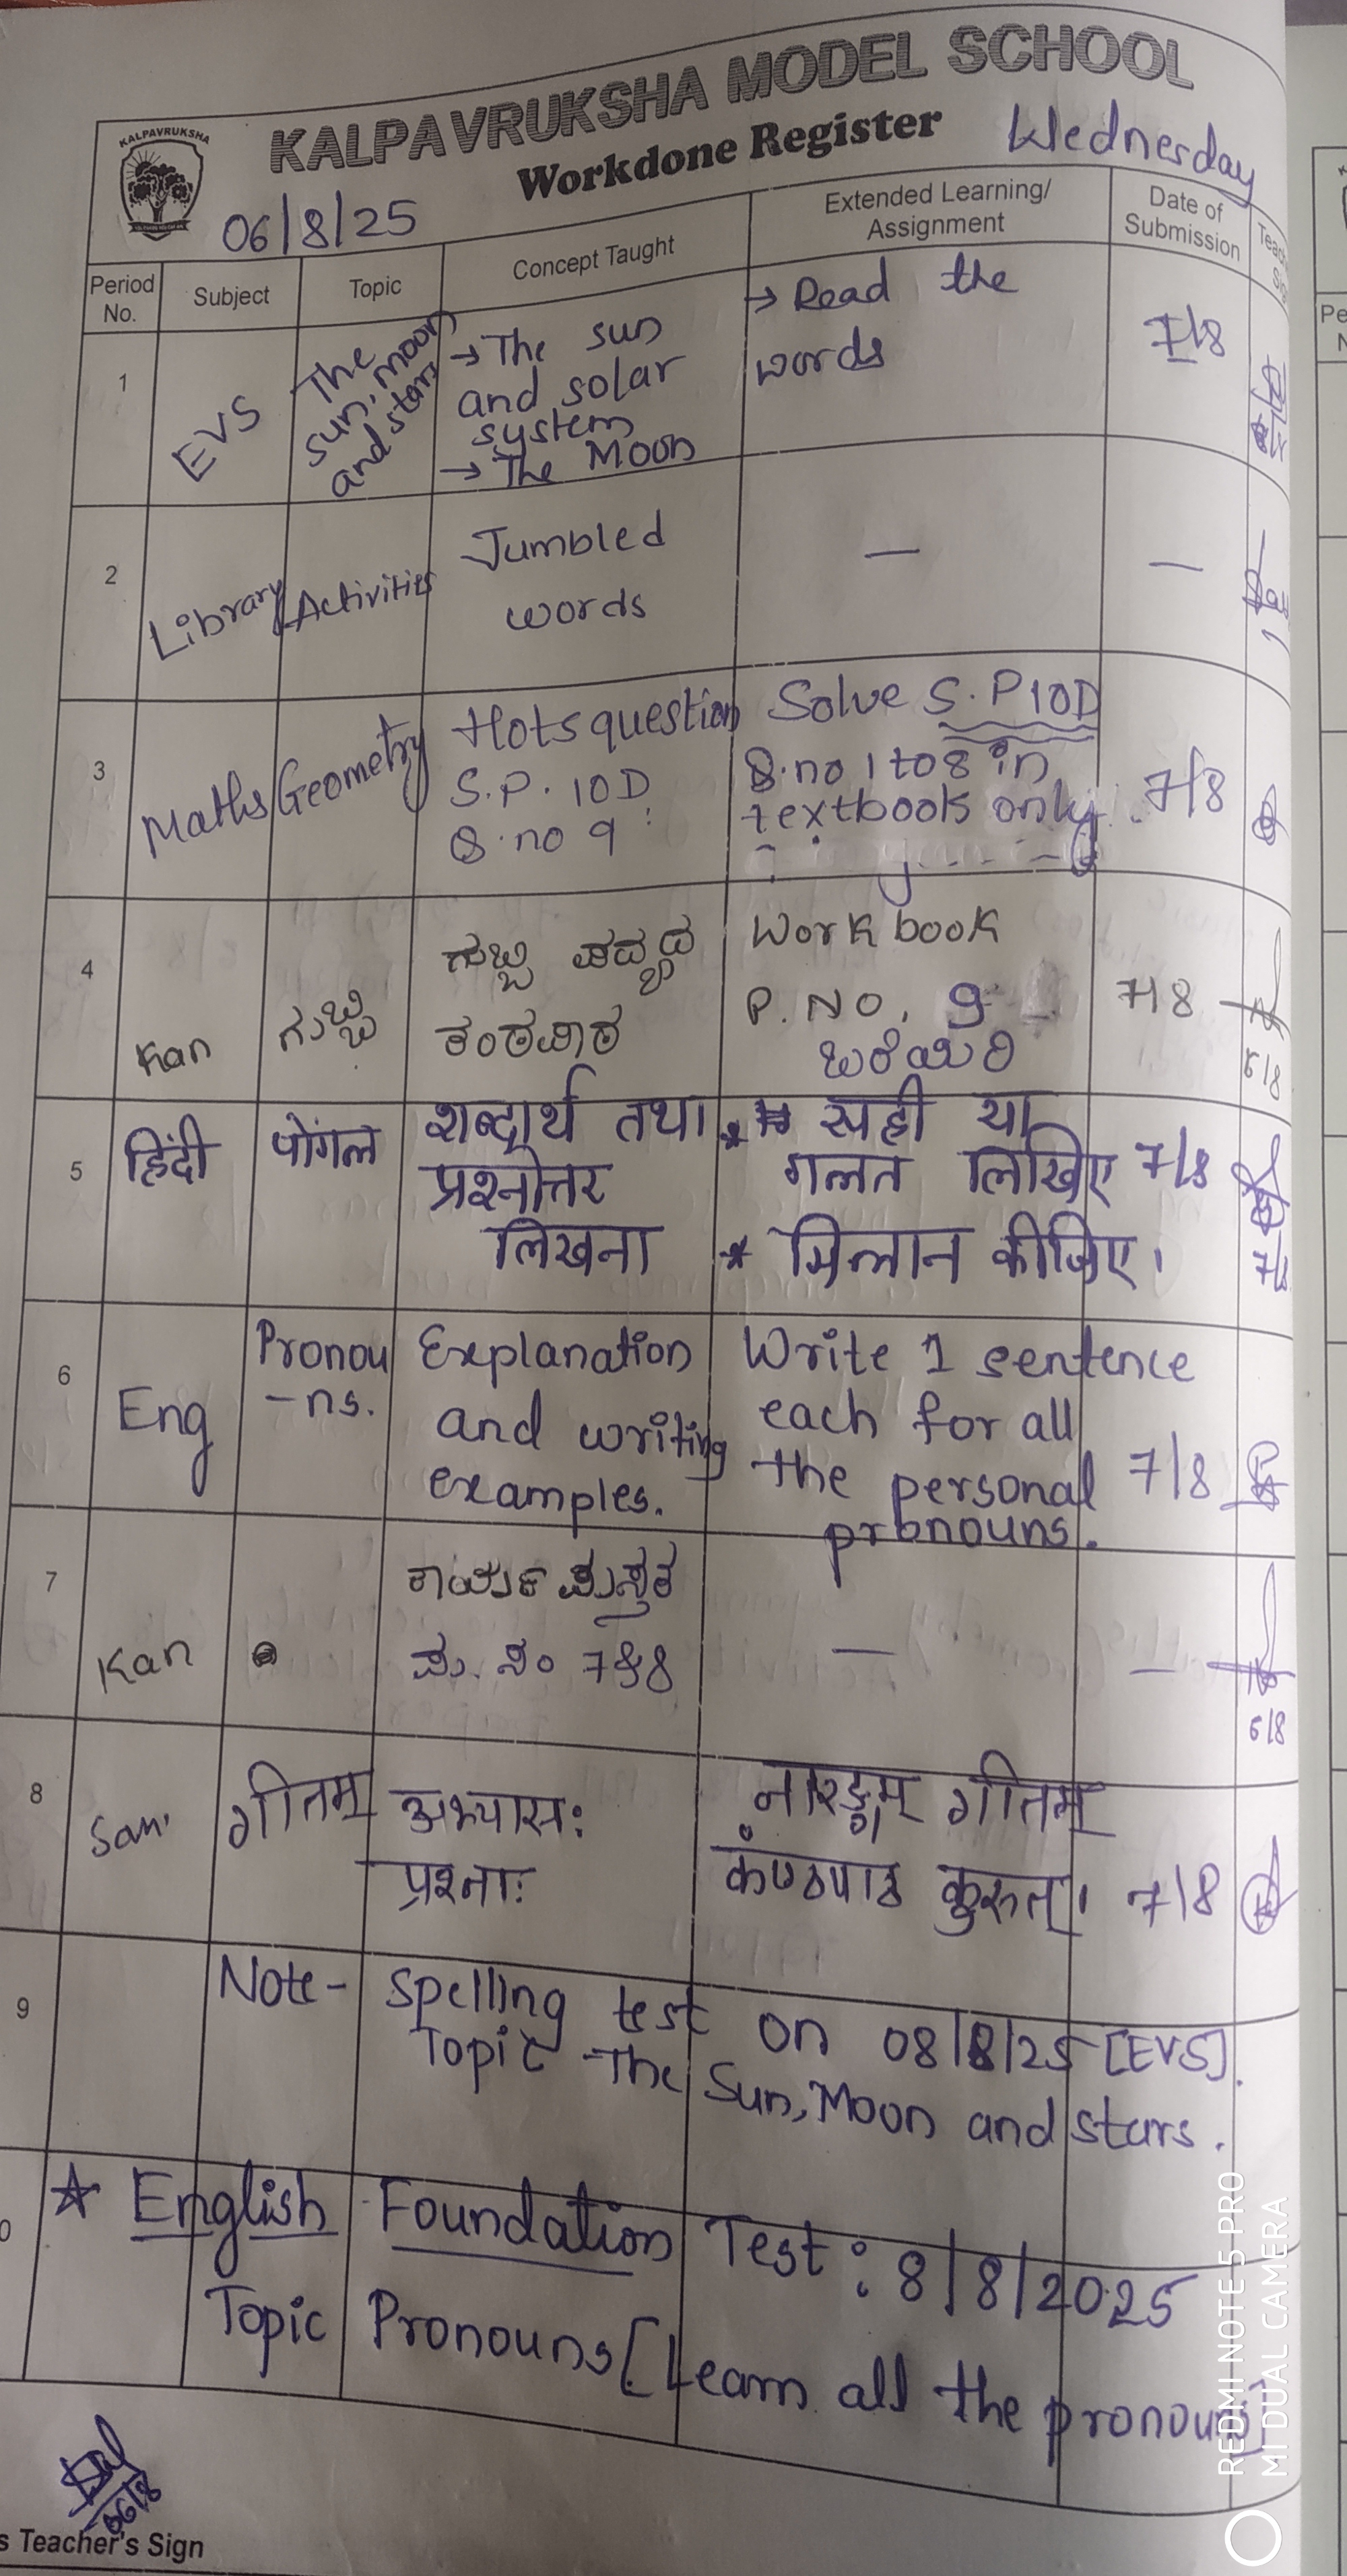 KALPAVRUKSHA MODEL SCHOOL
KALPAVRUKSHA
Workdone Register
Wednesday
06/8/25
Period No.
Subject
Topic
Concept Taught
Extended Learning/
Assignment
Date of
Submission
1
EVS
The
sun, moon
and stars
→ The sun
and solar
system
→ The Moon
→ Read the
words
7/8
2
Library
Activities
Jumbled
words
—
—
3
Maths
Geometry
Hots question
S.P. 10D
Q.no 9
Solve S.P 10D
Q.no 1 to 8 in
textbook only.
7/8
4
Kan
ಗುಬ್ಬಿ
ಗುಬ್ಬಿ ಪದ್ಯದ
ಕಂಠಪಾಠ
Work book
P. No. 9
ಬರೆಯಿರಿ
7/8
6/8
5
हिंदी
पोंगल
शब्दार्थ तथा
प्रश्नोत्तर
लिखना
* सही या
गलत लिखिए
* मिलान कीजिए।
7/8
6
Eng
Pronou
-ns.
Explanation
and writing
examples.
Write 1 sentence
each for all
the personal
pronouns.
7/8
7
Kan
ಕಾರ್ಯ ಪುಸ್ತಕ
ಪು. ಸಂ 7&8
—
—
6/8
8
San'
गीतम्
अभ्यासः
प्रश्नाः
नारङ्गम् गीतम्
कंण्ठपाठ कुरुत्।
7/8
9
Note- Spelling test on 08/8/25 [EVS].
Topic -The Sun, Moon and stars.
☆ English Foundation Test : 8/8/2025
Topic Pronouns [Learn all the pronouns]
06/8
s Teacher's Sign
REDMI NOTE 5 PRO
MI DUAL CAMERA